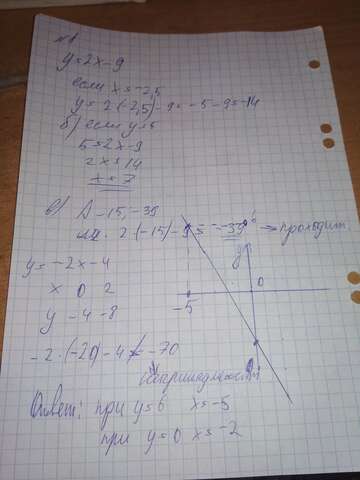 №1
y=2x-9
если x=-2,5
y=2·(-2,5)-9=-5-9=-14
б) если y=5
5=2x-9
2x=14
x=7
в) A -15; -39
2·(-15)-9=-39 проходит
y
y=-2x-4
x 0 2
0
y -4 -8
-5
-2·(-20)-4≠-70
Не принадлежит
Ответ: при y=6 x=-5
при y=0 x=-2